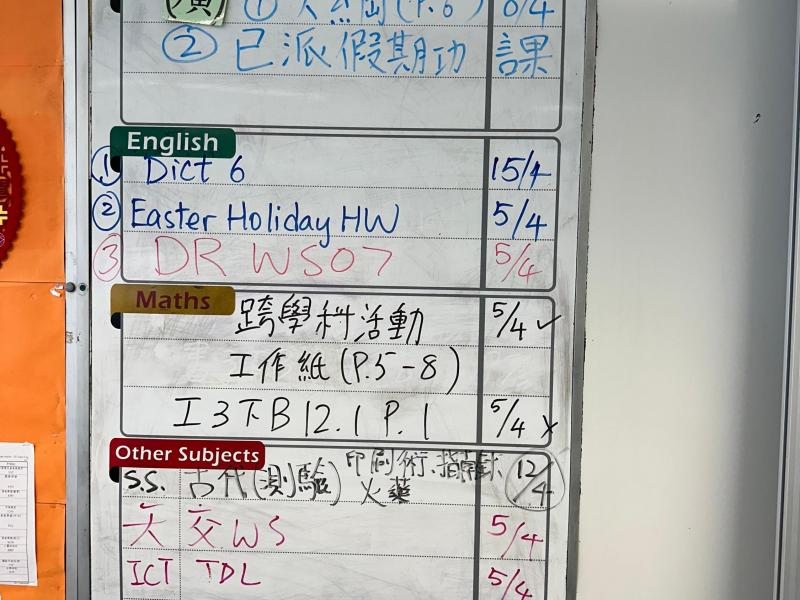 ② 已派假期功課
English
① Dict 6 15/4
② Easter Holiday HW 5/4
③ DR WS07 5/4
Maths
跨學科活動 5/4 ✓
工作紙(P.5-8)
I3下B12.1 P.1 5/4 x
Other Subjects
S.S. 古代(測驗) 印刷術、指南針 火藥 12/4
交WS 5/4
ICT TDL 5/4